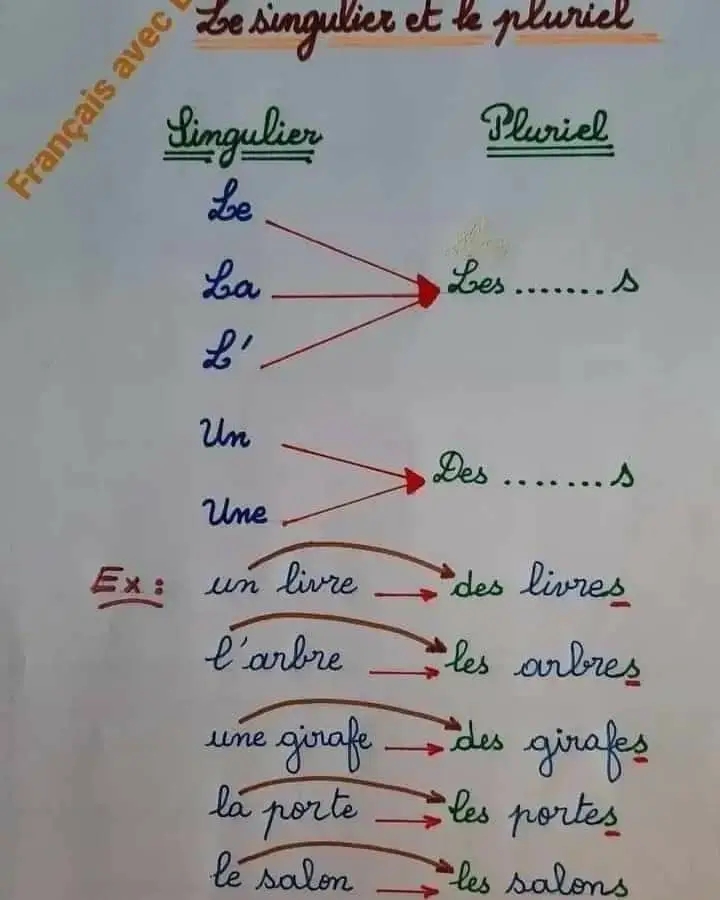 Français avec
Le singulier et le pluriel
Singulier Pluriel
Le
La Les ....... s
L'
Un
Des ....... s
Une
Ex : un livre des livres
l'arbre les arbres
une girafe des girafes
la porte les portes
le salon les salons